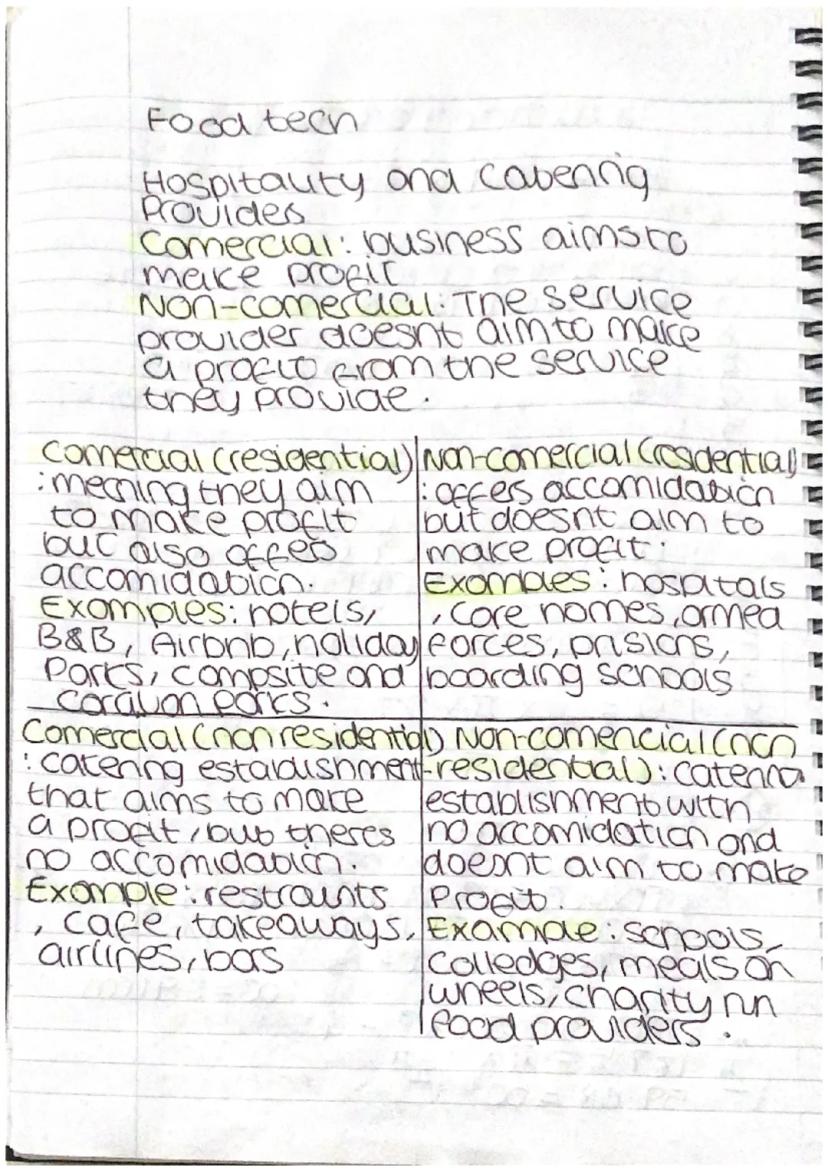 Food tech
Hospitality and Catering
Provides
Comercial: business aims to
make profit
Non-comercial: The service
provider doesnt aim to make
a profit from the service
they provide.
Comercial (residential)
: mening they aim
to make profit
but also offers
accomidation.
Examples: hotels,
B&B, Airbnb, holiday
Parks, campsite and
caravan parks.
Non-comercial (residential)
: offers accomidation
but doesnt aim to
make profit.
Examples: hospitals
, care homes, armed
forces, prisions,
boarding schools
Comercial (non residential)
: catering establishment
that aims to make
a profit, but theres
no accomidation.
Example: restraints
, cafe, takeaways,
airlines, bars
Non-comencial (non
-residential): catering
establishment with
no accomidation and
doesnt aim to make
Profit.
Example: schools,
colledges, meals on
wheels, charity run
food providers.